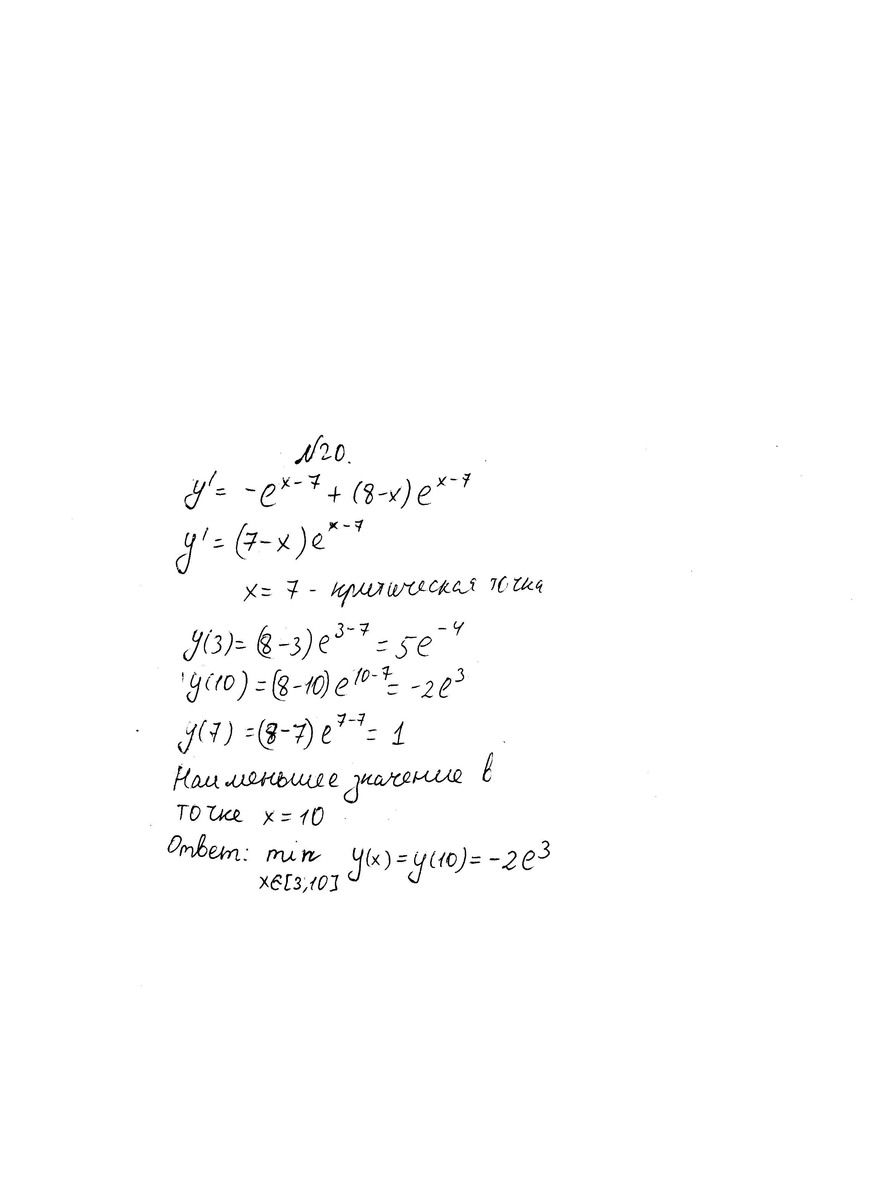 №20.
y' = -e^{x-7} + (8-x)e^{x-7}
y' = (7-x)e^{x-7}
x = 7 - критическая точка
y(3) = (8-3)e^{3-7} = 5e^{-4}
y(10) = (8-10)e^{10-7} = -2e^3
y(7) = (8-7)e^{7-7} = 1
Наименьшее значение в
точке x = 10
Ответ: min y(x) = y(10) = -2e^3
x∈[3;10]